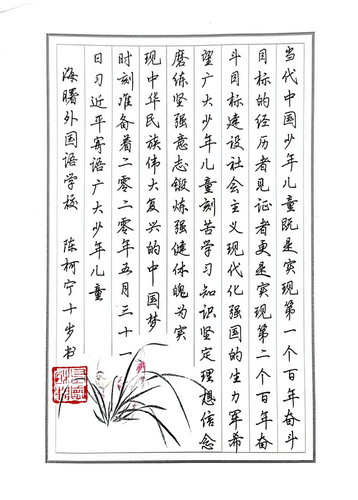 当代中国少年儿童既是实现第一个百年奋斗
目标的经历者见证者更是实现第二个百年奋
斗目标建设社会主义现代化强国的生力军希
望广大少年儿童刻苦学习知识坚定理想信念
磨练坚强意志锻炼强健体魄为实
现中华民族伟大复兴的中国梦
时刻准备着二零二零年五月三十一
日习近平寄语广大少年儿童
海曙外国语学校 陈柯宁十岁书